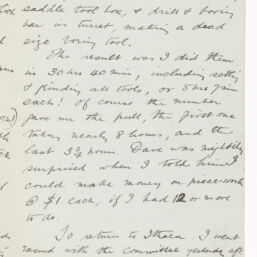 saddle tool box, & drill & boring
bar in turret, making a dead
size boring tool.
The result was I did them
in 30 hrs 40 min, including setting
& finding all tools, or 5 hrs 7 min
each! Of course the number
gave me the pull, the first one
taking nearly 8 hours, and the
last 3 3/4 hours. Dave was mightily
surprised when I told him I
could make money on piece-work
@ $1 each, if I had 12 or more
to do.
To return to Ithaca. I went
round with the committee yesterday aft